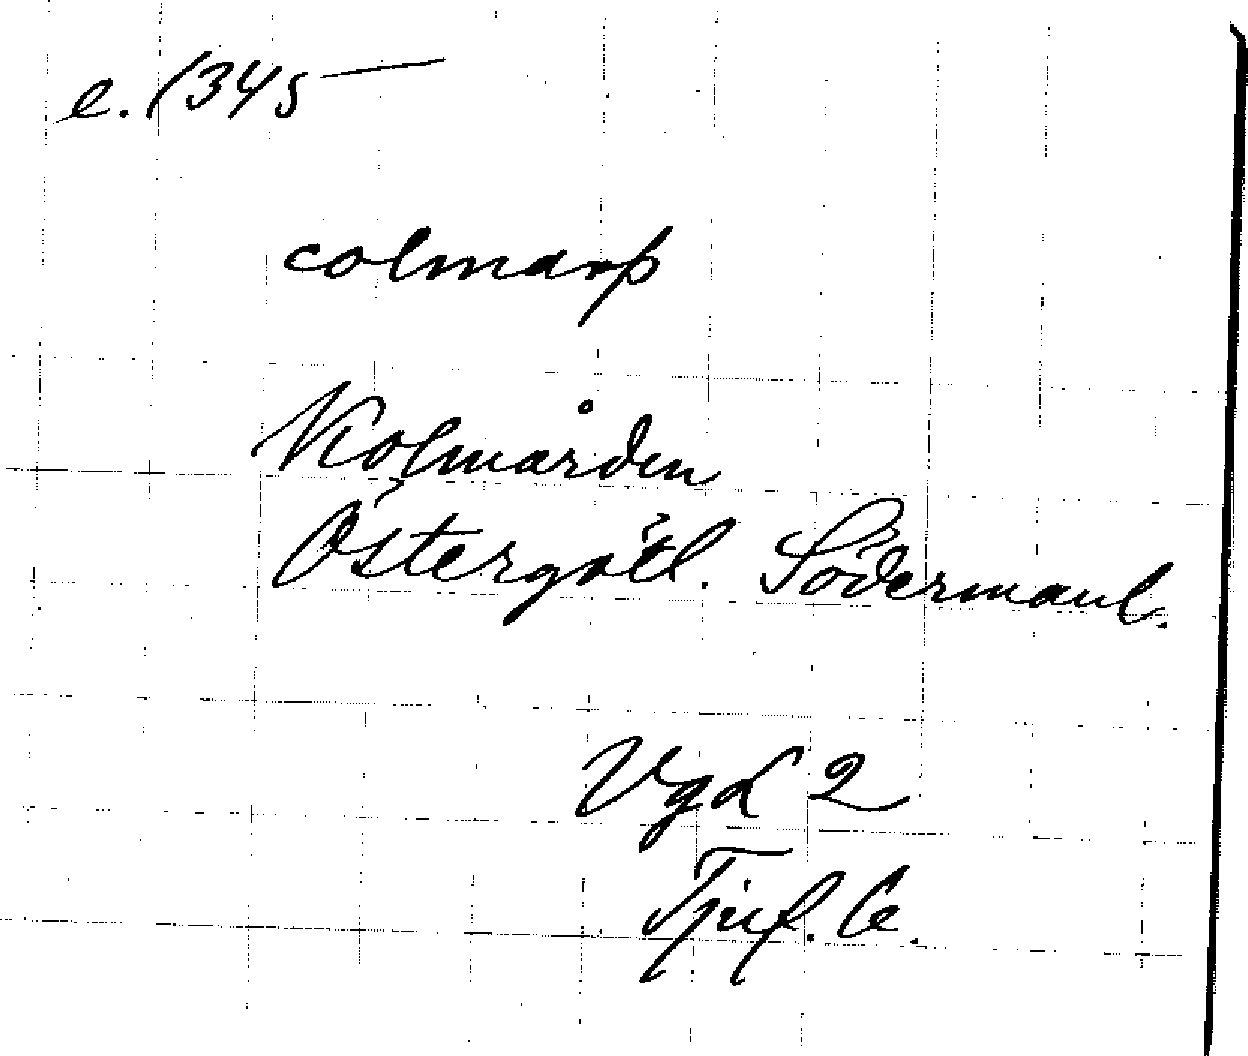 e. 1345
colmarþ
Kolmården
Östergötl. Södermanl.
VgL 2
Tjuf. C.